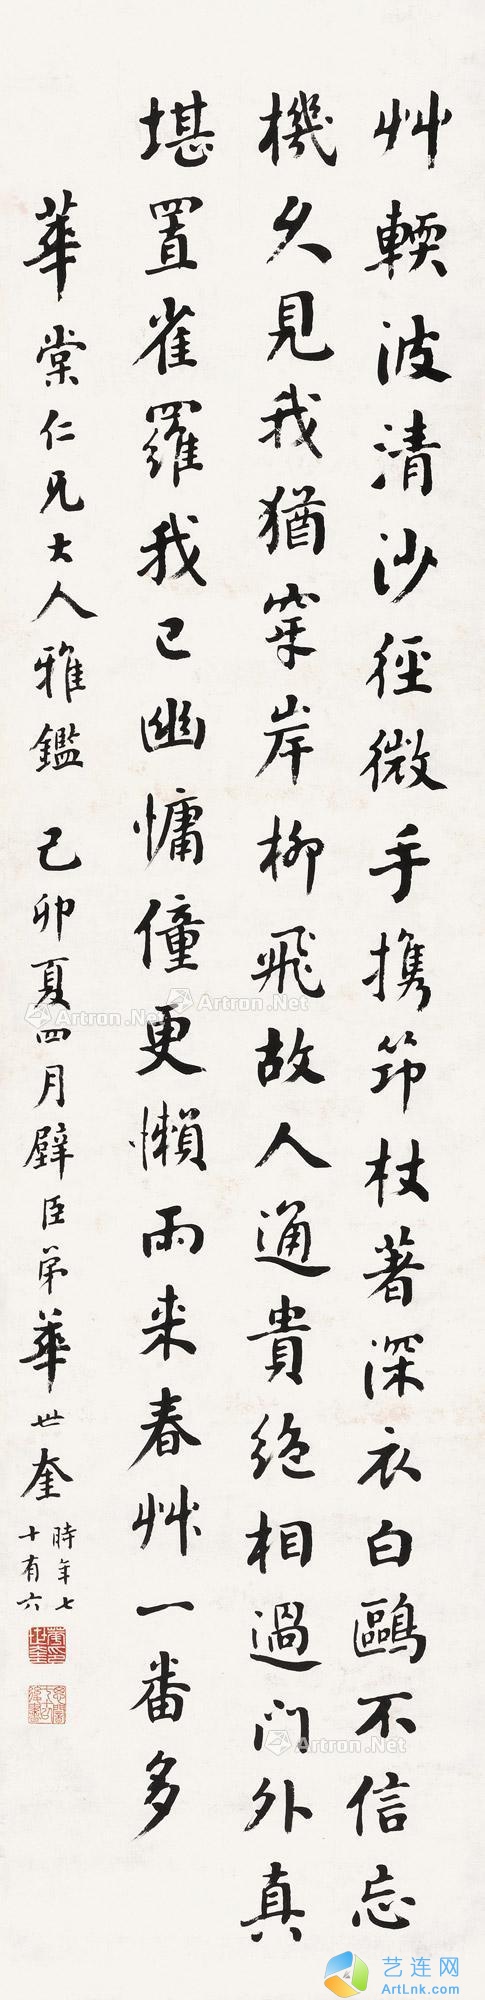 艸輭波清沙徑微手攜笻杖著深衣白鷗不信忘
機久見我猶穿岸柳飛故人通貴絶相過門外真
堪置雀羅我已幽慵僮更懶雨来春艸一番多
華棠仁兄大人雅鑑 己卯夏四月璧臣弟華世奎
時年七
十有六
Artron.Net
Artron.Net
Artron.Net
艺连网
ArtLnk.com